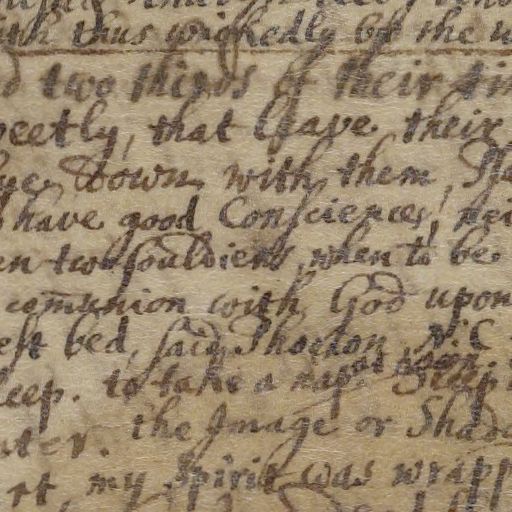 thus wickedly by the
two thirds of their tim
eetly, that leave their
lye down with them,
have good Consciences, nei
en two souldiers, when to be
communion with God upon
est bed, said Thoxton N. C
leep. to take a nap at noon Sleep
ater. the Image or Shado
rt, my spirit was wrapp